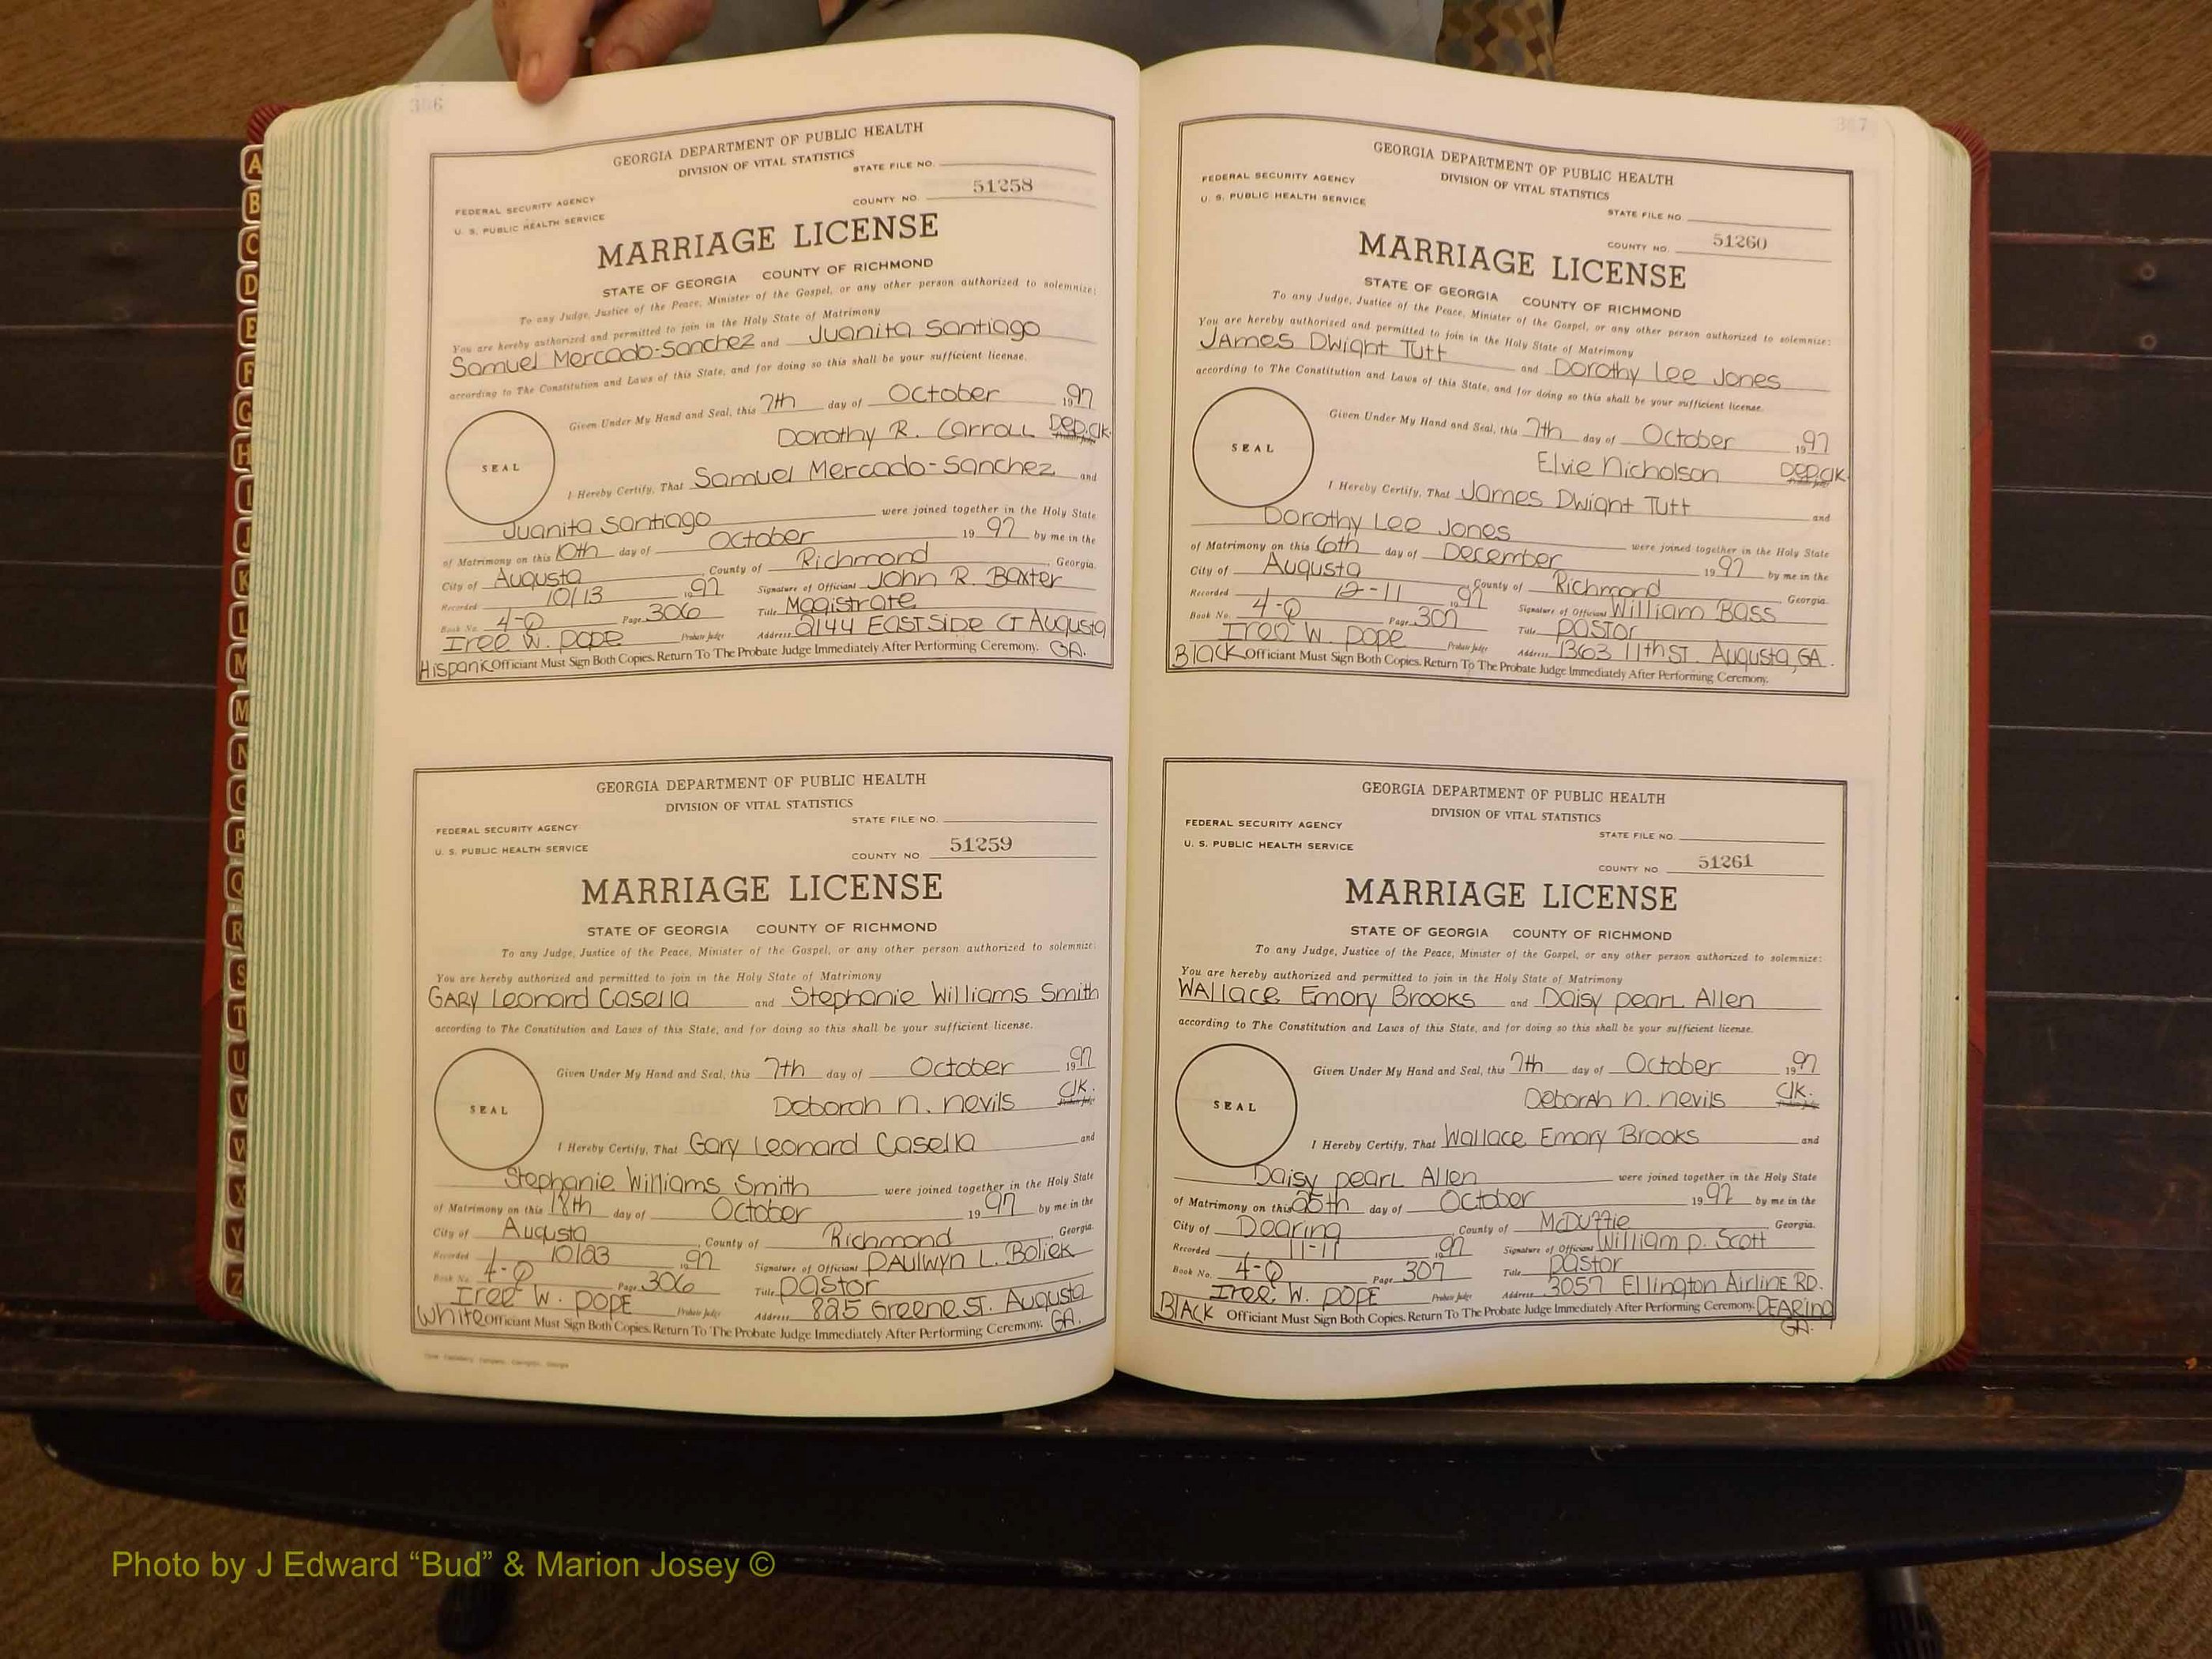 A
B
C
D
E
F
G
H
I
J
K
L
M
M
N
O
P
Q
R
S
T
U
V
W
X
Y
Z
306
GEORGIA DEPARTMENT OF PUBLIC HEALTH
DIVISION OF VITAL STATISTICS
STATE FILE NO.
FEDERAL SECURITY AGENCY
U. S. PUBLIC HEALTH SERVICE
COUNTY NO. 51258
MARRIAGE LICENSE
STATE OF GEORGIA COUNTY OF RICHMOND
To any Judge, Justice of the Peace, Minister of the Gospel, or any other person authorized to solemnize:
You are hereby authorized and permitted to join in the Holy State of Matrimony
Samuel Mercado-Sanchez and Juanita Santiago
according to The Constitution and Laws of this State, and for doing so this shall be your sufficient license.
Given Under My Hand and Seal, this 7th day of October 1997
Dorothy R. Carroll Dep. Clk.
SEAL
I Hereby Certify, That Samuel Mercado-Sanchez and
Juanita Santiago were joined together in the Holy State
of Matrimony on this 10th day of October 1997 by me in the
City of Augusta, County of Richmond, Georgia.
Recorded 10/13 1997 Signature of Officiant John R. Baxter
Book No. 4-Q Page 306 Title Magistrate
Iree W. Pope Probate Judge Address 2144 EAST Side CT Augusta
Hispanic Officiant Must Sign Both Copies. Return To The Probate Judge Immediately After Performing Ceremony. GA.
GEORGIA DEPARTMENT OF PUBLIC HEALTH
DIVISION OF VITAL STATISTICS
STATE FILE NO.
FEDERAL SECURITY AGENCY
U. S. PUBLIC HEALTH SERVICE
COUNTY NO 51259
MARRIAGE LICENSE
STATE OF GEORGIA COUNTY OF RICHMOND
To any Judge, Justice of the Peace, Minister of the Gospel, or any other person authorized to solemnize:
You are hereby authorized and permitted to join in the Holy State of Matrimony
GARY Leonard Casella and Stephanie Williams Smith
according to The Constitution and Laws of this State, and for doing so this shall be your sufficient license.
Given Under My Hand and Seal, this 7th day of October 1997
Deborah N. Nevils Clk.
SEAL
I Hereby Certify, That Gary Leonard Casella and
Stephanie Williams Smith were joined together in the Holy State
of Matrimony on this 18th day of October 1997 by me in the
City of Augusta, County of Richmond, Georgia.
Recorded 10/23 1997 Signature of Officiant PAulwyn L. Boliek
Book No. 4-Q Page 306 Title pastor
Iree W. POPE Probate Judge Address 825 Greene ST. Augusta
White Officiant Must Sign Both Copies. Return To The Probate Judge Immediately After Performing Ceremony. GA.
307
GEORGIA DEPARTMENT OF PUBLIC HEALTH
DIVISION OF VITAL STATISTICS
FEDERAL SECURITY AGENCY
U. S. PUBLIC HEALTH SERVICE
STATE FILE NO.
COUNTY NO. 51260
MARRIAGE LICENSE
STATE OF GEORGIA COUNTY OF RICHMOND
To any Judge, Justice of the Peace, Minister of the Gospel, or any other person authorized to solemnize:
You are hereby authorized and permitted to join in the Holy State of Matrimony
JAmes Dwight Tutt and Dorothy Lee Jones
according to The Constitution and Laws of this State, and for doing so this shall be your sufficient license.
Given Under My Hand and Seal, this 7th day of October 1997
Elvie Nicholson Dep. Clk.
SEAL
I Hereby Certify, That James Dwight Tutt and
Dorothy Lee Jones were joined together in the Holy State
of Matrimony on this 6th day of December 1997 by me in the
City of Augusta, County of Richmond, Georgia.
Recorded 12-11 1997 Signature of Officiant William Bass
Book No. 4-Q Page 307 Title pastor
Iree W. pope Probate Judge Address 1363 11th ST. Augusta, GA.
Black Officiant Must Sign Both Copies. Return To The Probate Judge Immediately After Performing Ceremony.
GEORGIA DEPARTMENT OF PUBLIC HEALTH
DIVISION OF VITAL STATISTICS
FEDERAL SECURITY AGENCY
U. S. PUBLIC HEALTH SERVICE
STATE FILE NO.
COUNTY NO 51261
MARRIAGE LICENSE
STATE OF GEORGIA COUNTY OF RICHMOND
To any Judge, Justice of the Peace, Minister of the Gospel, or any other person authorized to solemnize:
You are hereby authorized and permitted to join in the Holy State of Matrimony
WAllace Emory Brooks and Daisy pearl Allen
according to The Constitution and Laws of this State, and for doing so this shall be your sufficient license.
Given Under My Hand and Seal, this 7th day of October 1997
Deborah N. Nevils Clk.
SEAL
I Hereby Certify, That Wallace Emory Brooks and
Daisy pearl Allen were joined together in the Holy State
of Matrimony on this 25th day of October 1997 by me in the
City of Dearing, County of McDuffie Georgia.
Recorded 11-11 1997 Signature of Officiant William D. Scott
Book No. 4-Q Page 307 Title pastor
Iree W. POPE Probate Judge Address 3057 Ellington Airline RD.
BLACK Officiant Must Sign Both Copies. Return To The Probate Judge Immediately After Performing Ceremony. DEARing
GA.
Photo by J Edward “Bud” & Marion Josey ©